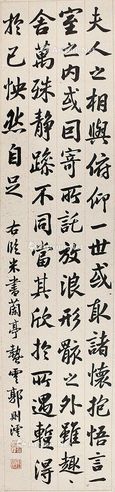 夫人之相與俯仰一世或取諸懷抱悟言一
室之内或囙寄所託放浪形骸之外雖趣
舍萬殊静躁不同當其欣於所遇輒得
於己怏然自足
右臨米書蘭亭蟄雲郭則澐